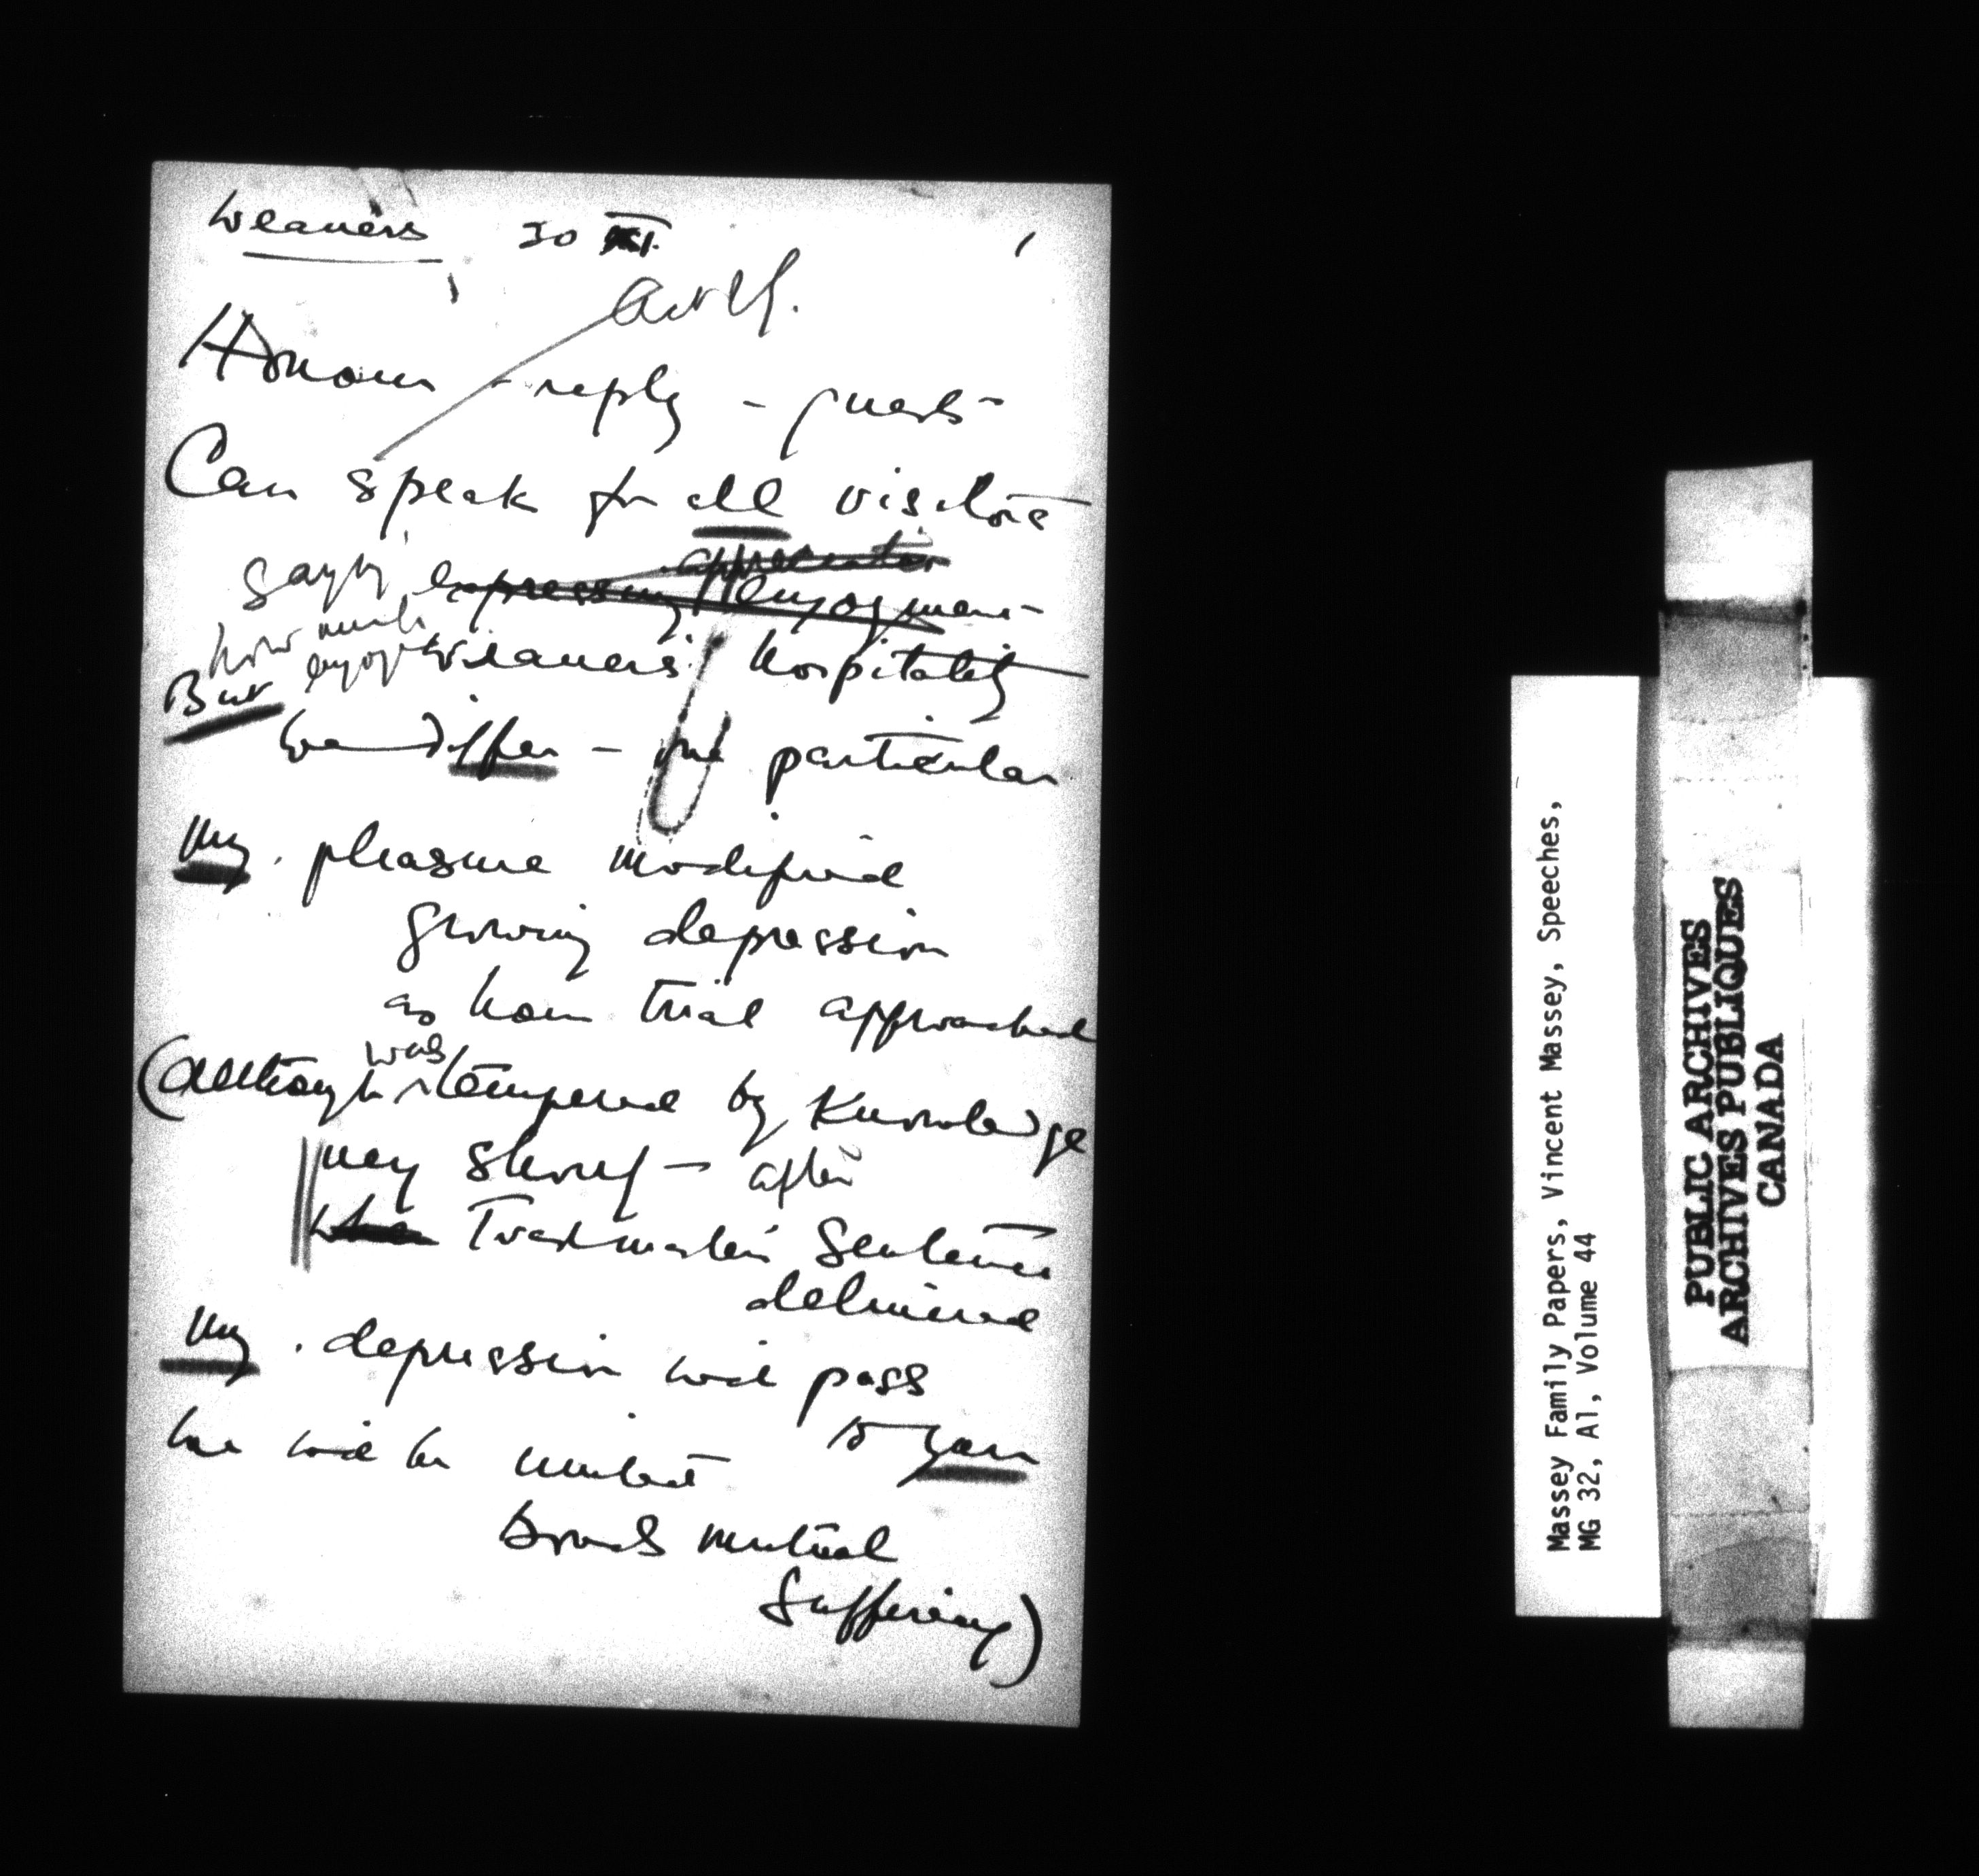 Weavers 30 XI. 1
Honour - reply - guests
Can speak for all visitors
saying expressing appreciation enjoyment
how much enjoyed Weavers' hospitality
But
we differ - one particular
My. pleasure modified
growing depression
as hour trial approached
(although was tempered by knowledge
very short - after
when Toastmaster's sentence
delivered
My. depression will pass
to you
we will be united
bonds mutual
suffering)
Massey Family Papers, Vincent Massey, Speeches,
MG 32, A1, Volume 44
PUBLIC ARCHIVES
ARCHIVES PUBLIQUES
CANADA